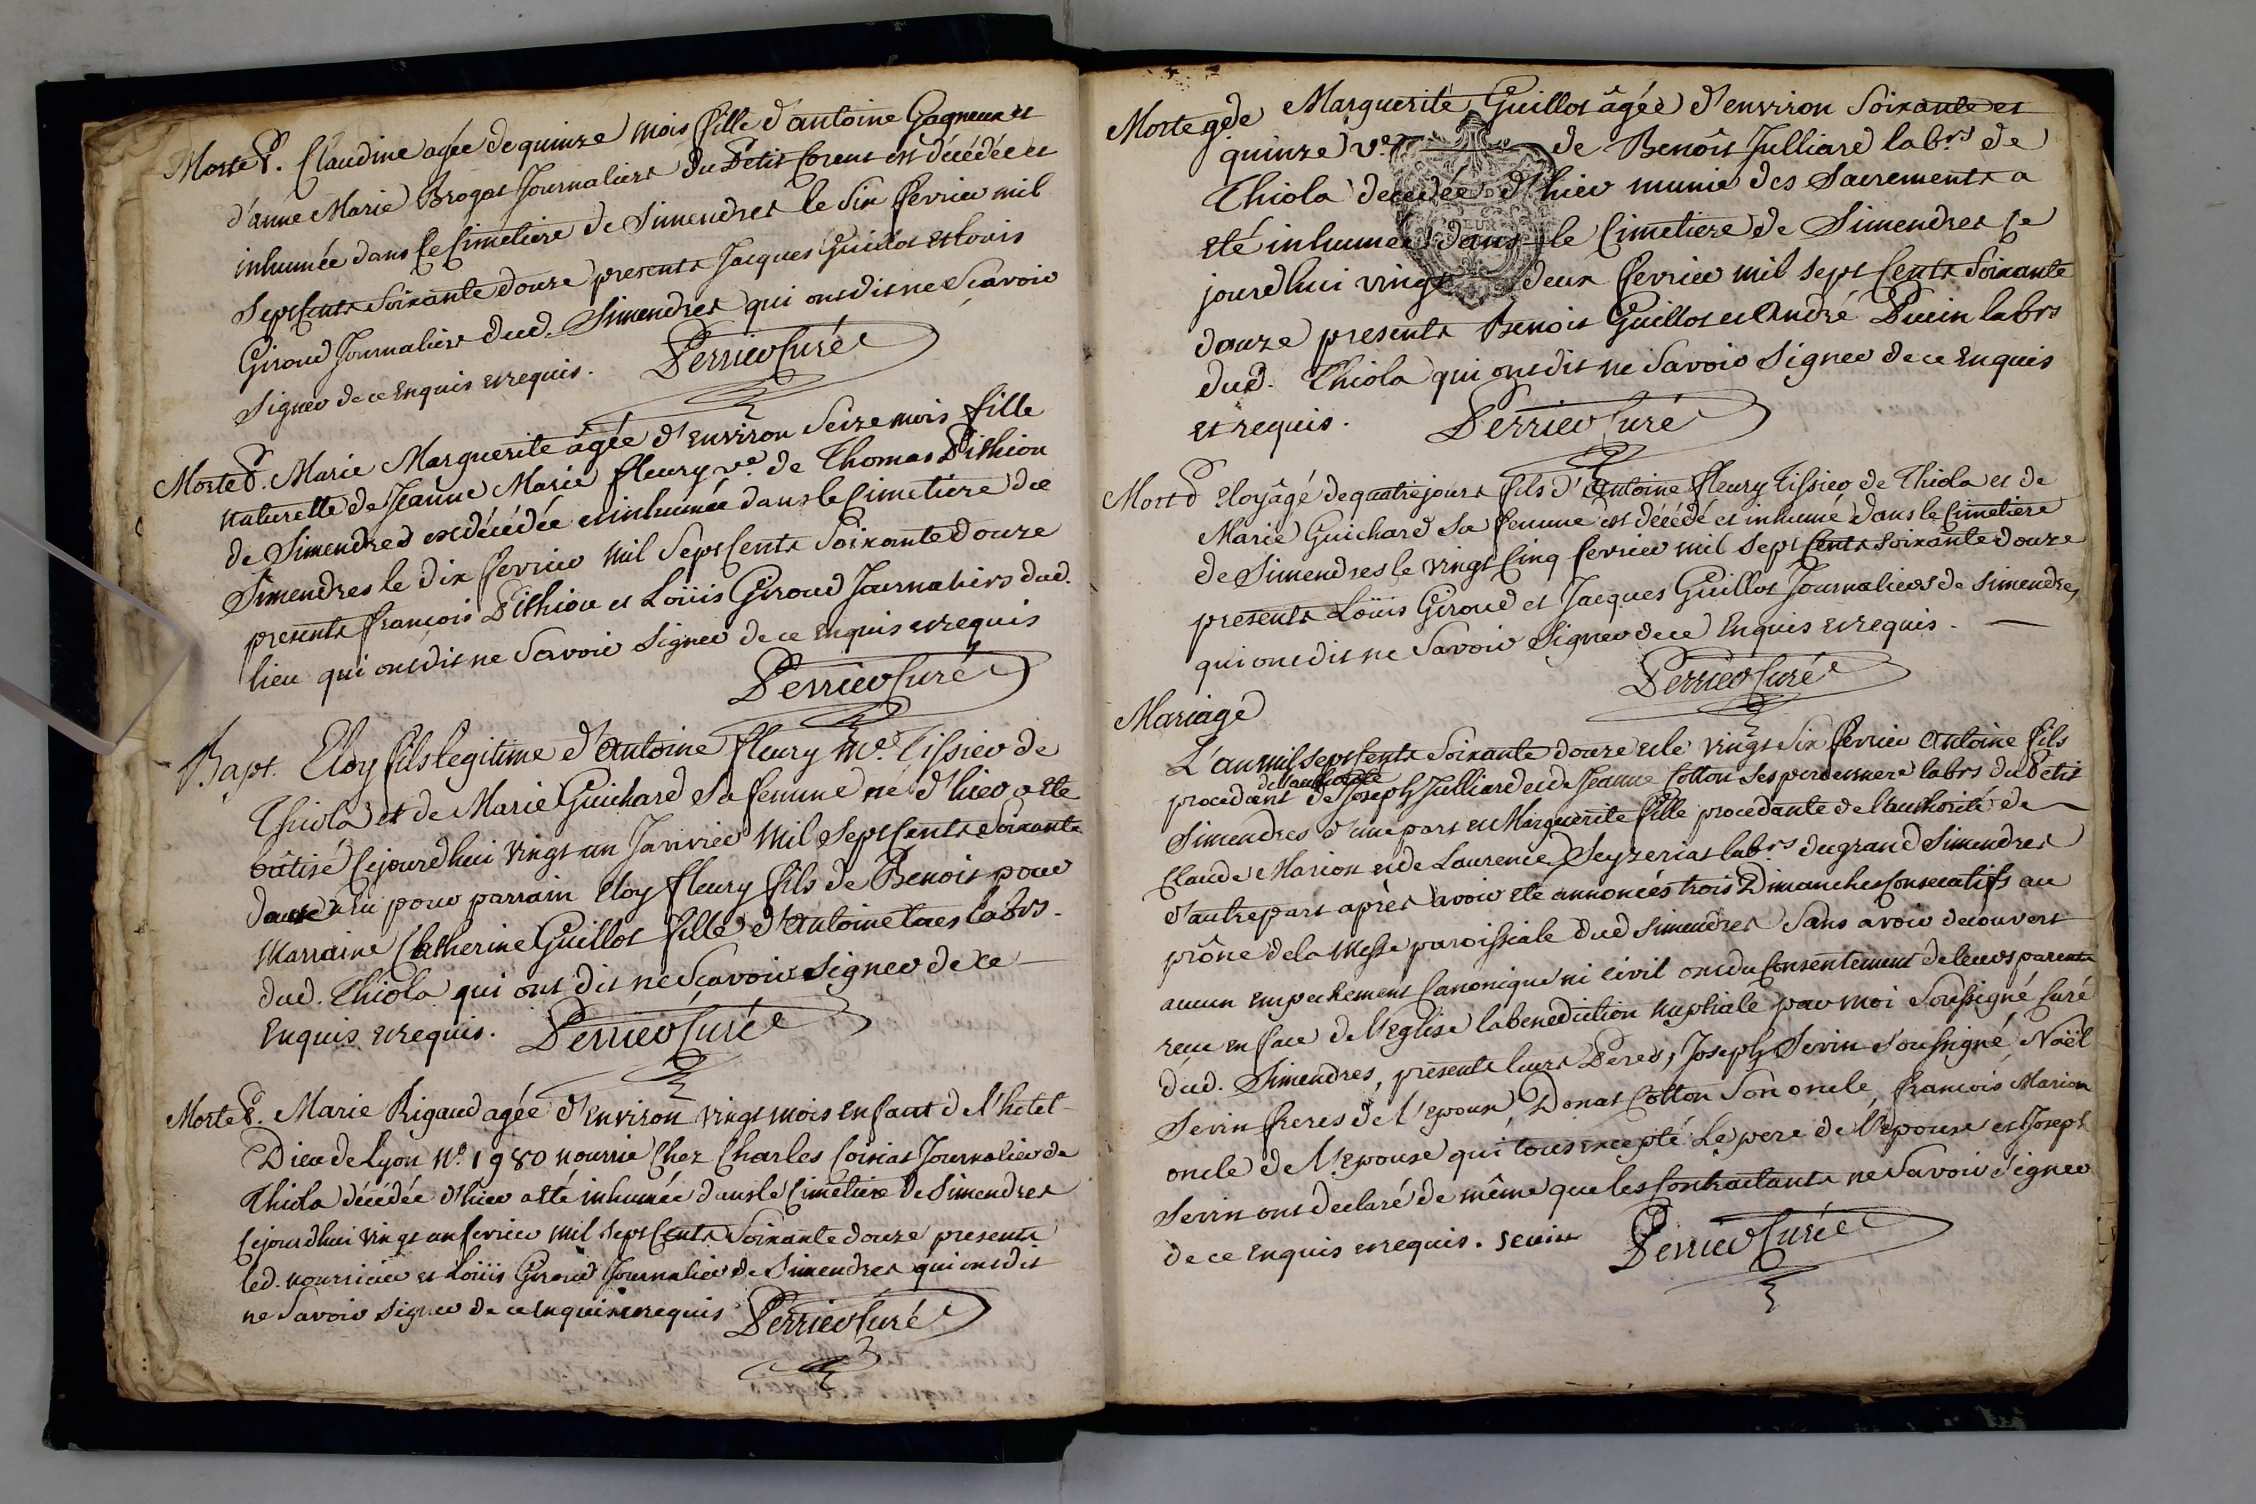 Morte P. Claudine agée de quinze mois fille d'antoine Gagneux et
d'anne Marie Brogat Journaliers du Petit Corent est décédée et
inhumée dans le Cimetiere de Simendres le Six fevrier mil
Sept Cents Soixante douze presents Jacques Guillot et Louis
Giroud Journaliers dud. Simendres qui ont dit ne Scavoir
Signer de ce Enquis et requis. Perrier Curé
Morte P. Marie Marguerite âgée d'environ Seize mois fille
naturelle de Jeanne Marie fleury ve. de Thomas Pithion
de Simendres est décédée et inhumée dans le Cimetiere de
Simendres le dix fevrier mil Sept Cents Soixante douze
presents françois Pithion et Loüis Giroud Journaliers dud.
lieu qui ont dit ne Savoir Signer de ce enquis et requis
Perrier Curé
Bapt. Eloy fils legitime d'antoine fleury me. Tissier de
Thiola et de Marie Guichard Sa femme né d'hier a eté
bâtisé Cejourdhui vingt un Janvier mil Sept Cents Soixante
douze a eü pour parrain Eloy fleury fils de Benoit pour
Marraine Catherine Guillot fille d'antoine labrs.
dud. Thiola qui ont dit ne Scavoir Signer de ce
Enquis et requis. Perrier Curé
Morte P. Marie Rigaud agée d'environ vingt mois enfant de l'hotel
Dieu de Lyon No. 1980 nourrie Chez Charles Journalier de
Thiola décédée d'hier a eté inhumée dans le Cimetiere de Simendres
Cejourdhui vingt un fevrier mil Sept Cents Soixante douze presents
led. nourricier et Loüis Giroud Journalier de Simendres qui ont dit
ne Savoir Signer de ce enquis et requis Perrier Curé
Morte gde Marguerite Guillot âgée d'environ Soixante et
quinze ve. de Benôit Julliard labrs de
Thiola decedée d'hier munie des Sacrements a
eté inhumée dans le Cimetiere de Simendres ce
jourdhui vingt deux fevrier mil sept Cents Soixante
douze presents Benoit Guillot et André Puvin labrs
dud. Thiola qui ont dit ne Savoir Signer de ce Enquis
et requis. Perrier Curé
Mort P Eloy âgé de quatre jours fils d'Antoine fleury Tissier de Thiola et de
Marie Guichard Sa femme est décédé et inhumé dans le Cimetiere
de Simendres le vingt Cinq fevrier mil Sept Cents Soixante douze
presents Loüis Giroud et Jacques Guillot Journaliers de Simendres
qui ont dit ne Savoir Signer de ce Enquis et requis.
Perrier Curé
Mariage
L'an mil Sept Cents Soixante douze et le vingt Six fevrier Antoine fils
de l'authorité
procedant de Joseph Julliard et de Jeanne Cotton Ses pere et mere labrs du Petit
Simendres d'une part et Marguerite fille procedante de l'authorité de
Claude Marion et de Laurence Seyzeriat labrs du grand Simendres
d'autre part après avoir eté annoncés trois Dimanches Consecutifs au
prône de la Messe paroissiale dud Simendres Sans avoir decouvert
aucun empechement Canonique ni civil ont du Consentement de leurs parents
recu en face de l'Eglise la benediction nuptiale par moi Soussigné Curé
dud. Simendres, presents leurs Peres, Joseph Sevin Soussigné, Noël
Sevin freres de l'epoux, Donat Cotton Son oncle, francois Marion
oncle de l'Epouse qui tous excepté Le pere de l'epouse et Joseph
Sevin ont declaré de même que les Contractants ne Savoir Signer
de ce enquis et requis. sevin Perrier Curé